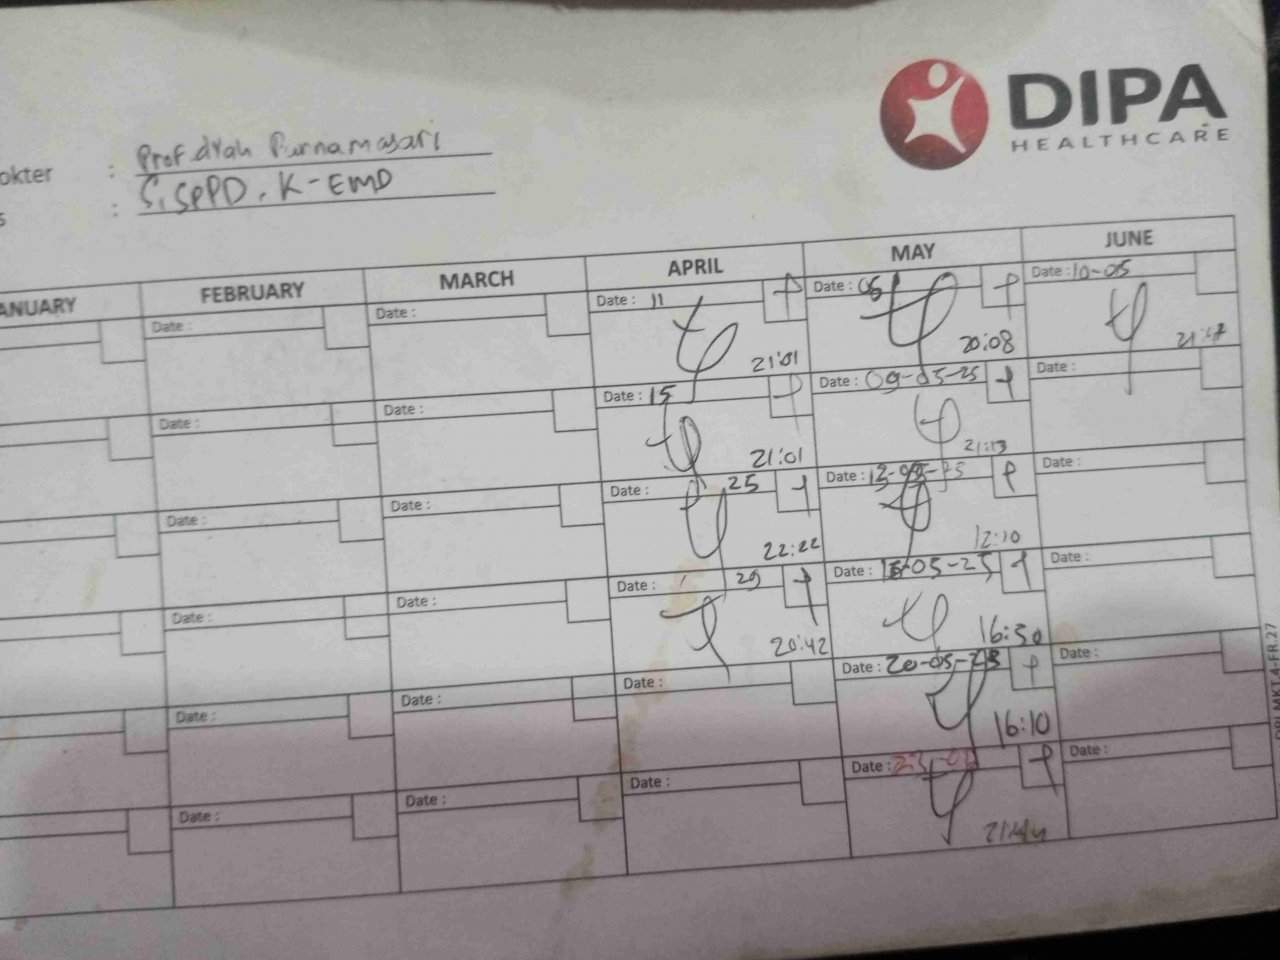 DIPA
HEALTHCARE
okter : Prof dyah Purnamasari
s : S,SpPD, K-EMD
ANUARY FEBRUARY MARCH APRIL MAY JUNE
Date : Date : Date : 11 Date : 05 Date : 10-05
21:01 20:08 21:17
Date : Date : Date : 15 Date : 09-05-25 Date :
21:01 21:13
Date : Date : Date : 25 Date : 13-05-25 Date :
22:22 12:10
Date : Date : Date : 29 Date : 15-05-25 Date :
20:42 16:30
Date : Date : Date : Date : 20-05-25 Date :
16:10
Date : Date : Date : Date : Date :
21:44